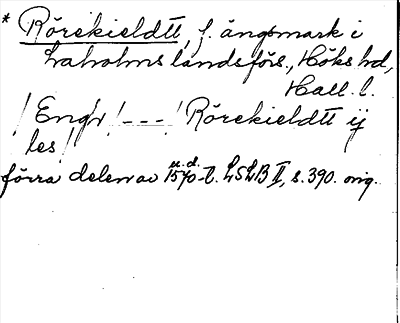 * Rörekieldtt, f. ängsmark i
Laholms landsförs., Höks hd,
Hall. l.
/ Engr / --- / Rörekieldtt ij
les /
u. d.
förra delen av 1570-t. LSLB II, s. 390. orig.